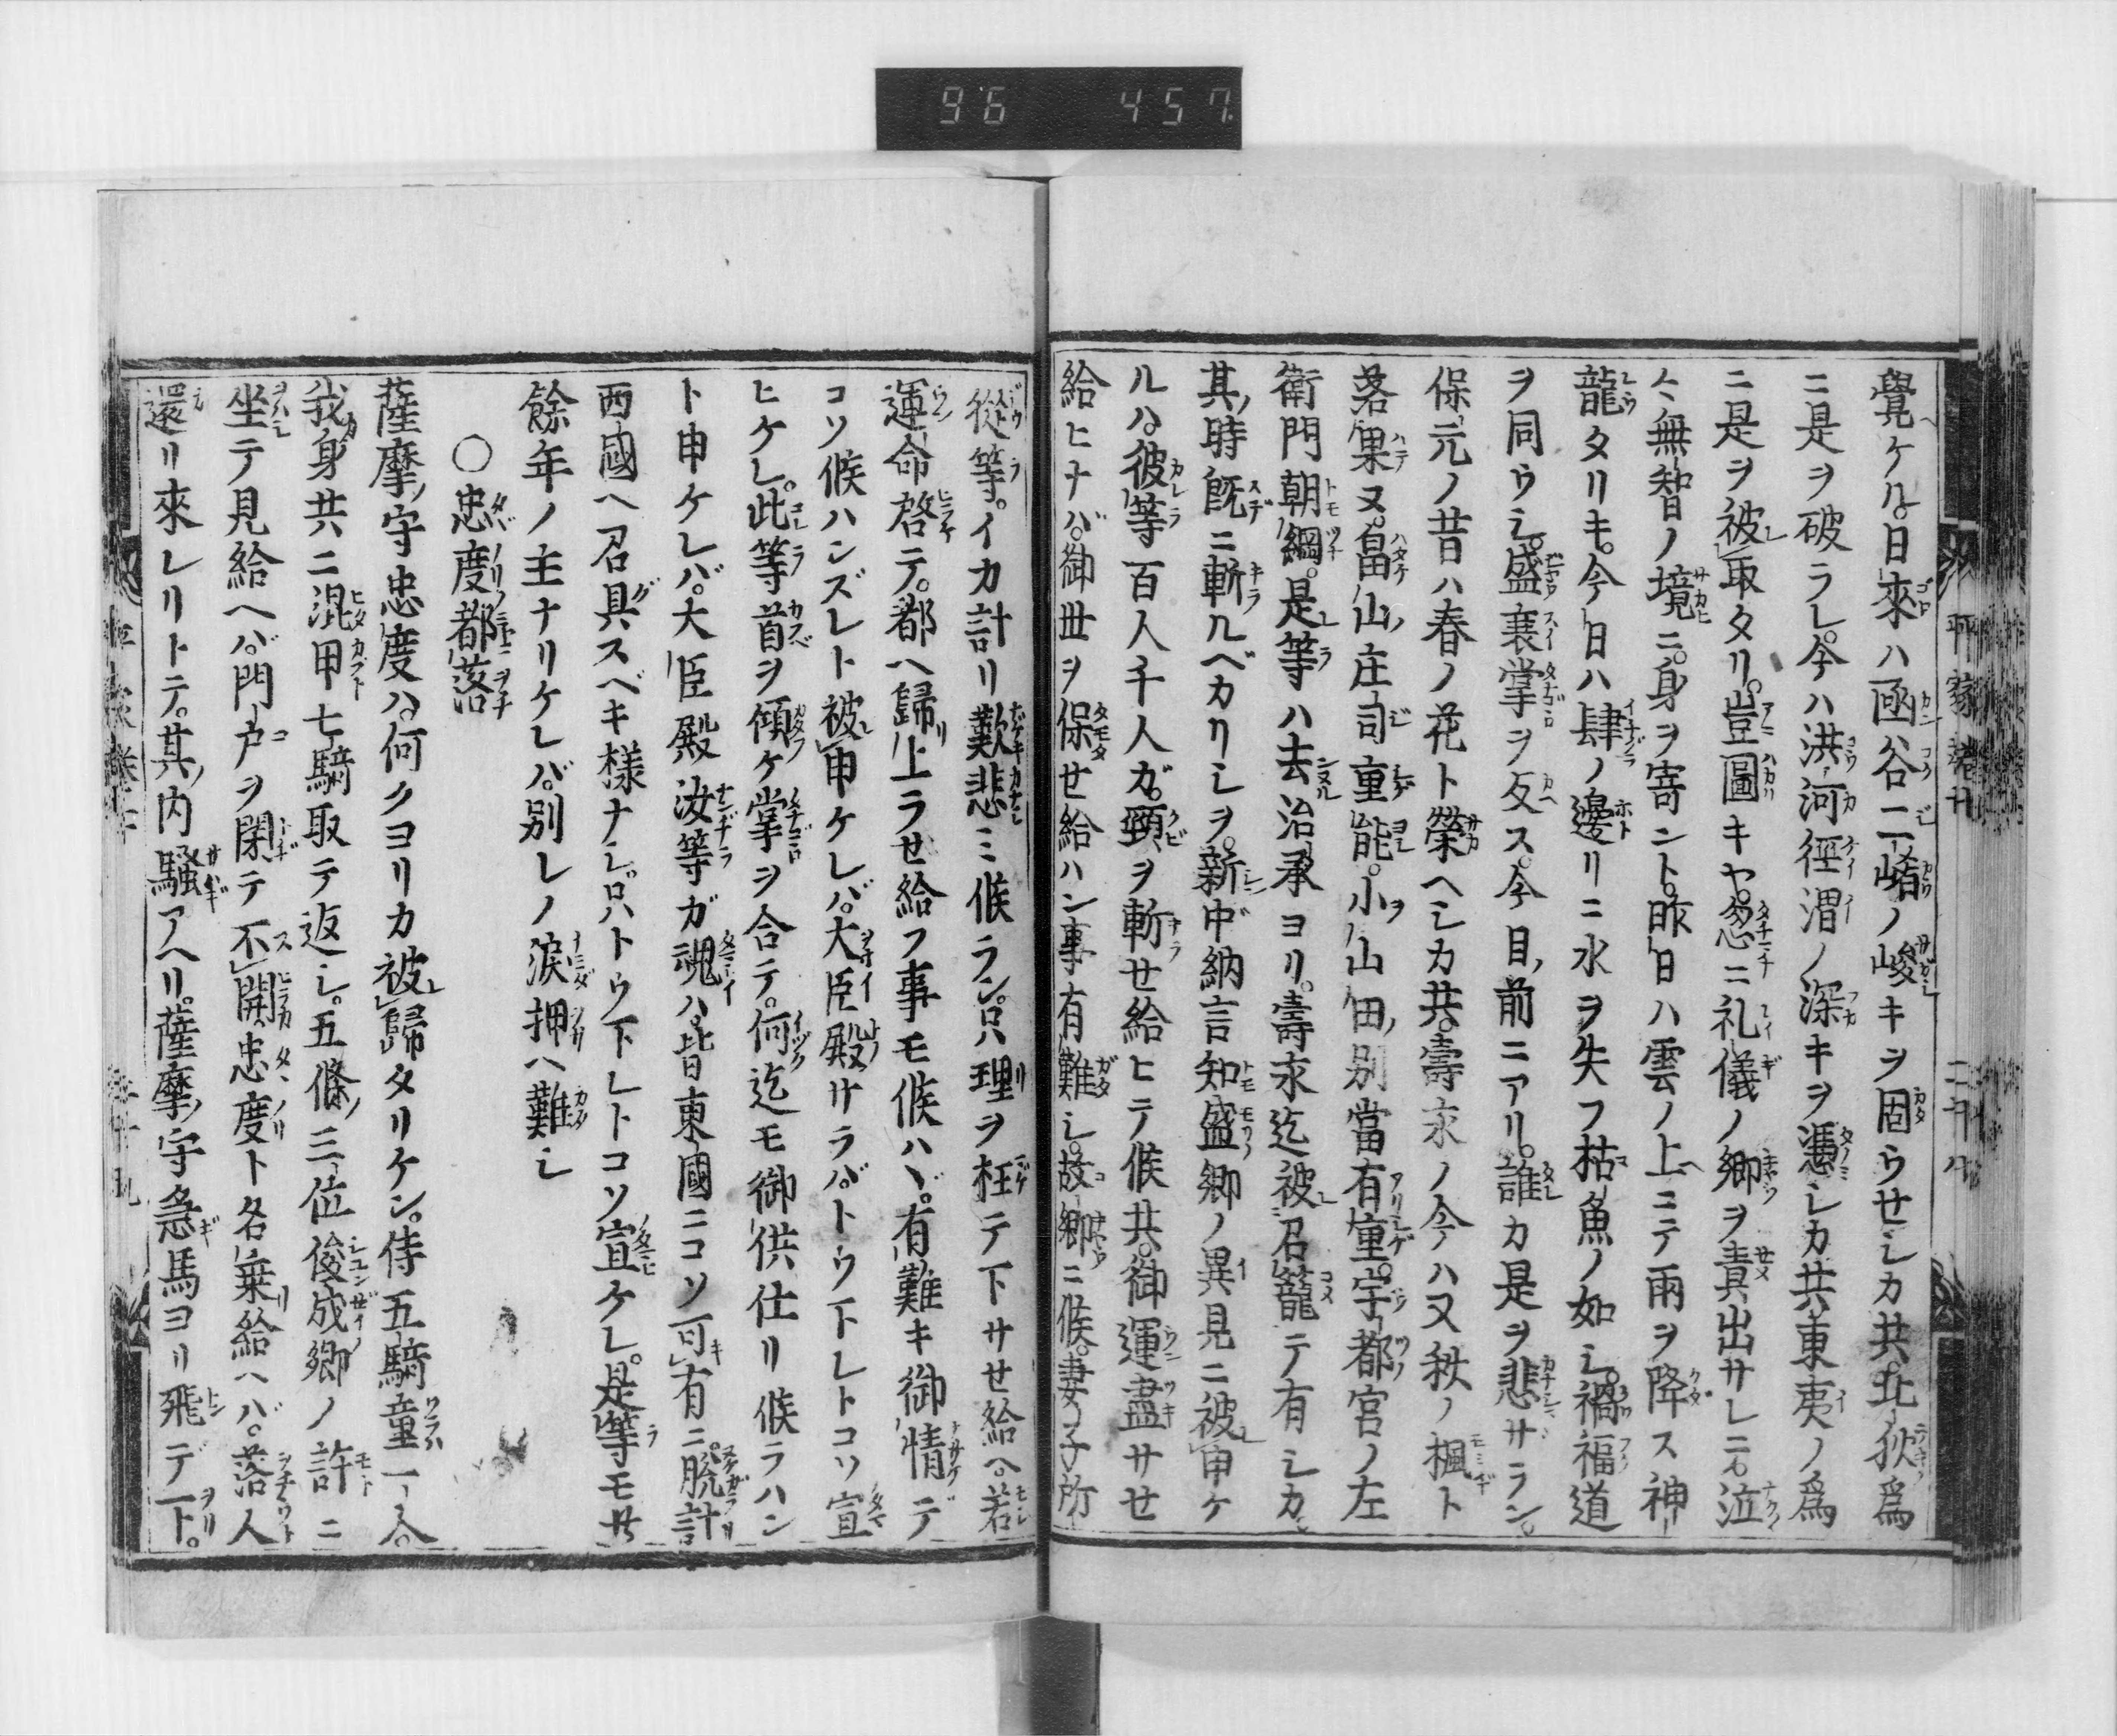 96 457
覺ケル。日來ハ凾谷二崤ノ峻キヲ固ウセシカ共。北狄爲
ニ是ヲ破ラレ。今ハ洪河徑渭ノ深キヲ憑シカ共東夷ノ爲
ニ是ヲ被取タリ。豈圖キヤ。忽ニ礼儀ノ郷ヲ責出サレテ泣
々無智ノ境ニ。身ヲ寄ント。昨日ハ雲ノ上ニテ雨ヲ降ス神
龍タリキ。今日ハ肆ノ邊リニ水ヲ失フ枯魚ノ如シ。禍福道
ヲ同ウシ。盛衰掌ヲ反ス。今目前ニアリ。誰カ是ヲ悲サラン。
保元ノ昔ハ春ノ花ト榮ヘシカ共。壽永ノ今ハ又秋ノ楓ト
落果ヌ。畠山庄司重能。小山田別當有重。宇都宮ノ左
衛門朝綱。是等ハ去治承ヨリ。壽永迄被召籠テ有シカ。
其時既ニ斬ルベカリシヲ。新中納言知盛卿ノ異見ニ被申ケ
ルハ。彼等百人千人ガ。頸ヲ斬セ給ヒテ候共。御運盡サセ
給ヒナバ。御世ヲ保セ給ハン事有難シ。故郷ニ候。妻子所
從等。イカ計リ歎悲ミ候ラン。只理ヲ枉テ下サセ給ヘ。若
運命啓テ。都ヘ歸上ラセ給フ事モ候ハヾ。有難キ御情デ
コソ候ハンズレト被申ケレバ。大臣殿サラバトウ下レトコソ宣
ヒケレ。此等首ヲ傾ケ掌ヲ合テ。何迄モ御供仕リ候ラハン
ト申ケレバ。大臣殿汝等ガ魂ハ。皆東國ニコソ可有ニ。脱計
西國ヘ召具スベキ樣ナシ。只トウ下レトコソ宣ケレ。是等モ廿
餘年ノ主ナリケレバ。別レノ淚押ヘ難シ
○忠度都落
薩摩守忠度ハ。何クヨリカ被歸タリケン。侍五騎童一人。
我身共ニ混甲七騎取テ返シ。五條三位俊成卿ノ許ニ
坐テ見給ヘバ。門戸ヲ閉テ不開。忠度ト名乗給ヘバ。落人
還リ來レリトテ。其内騷アヘリ。薩摩守急馬ヨリ飛デ下。